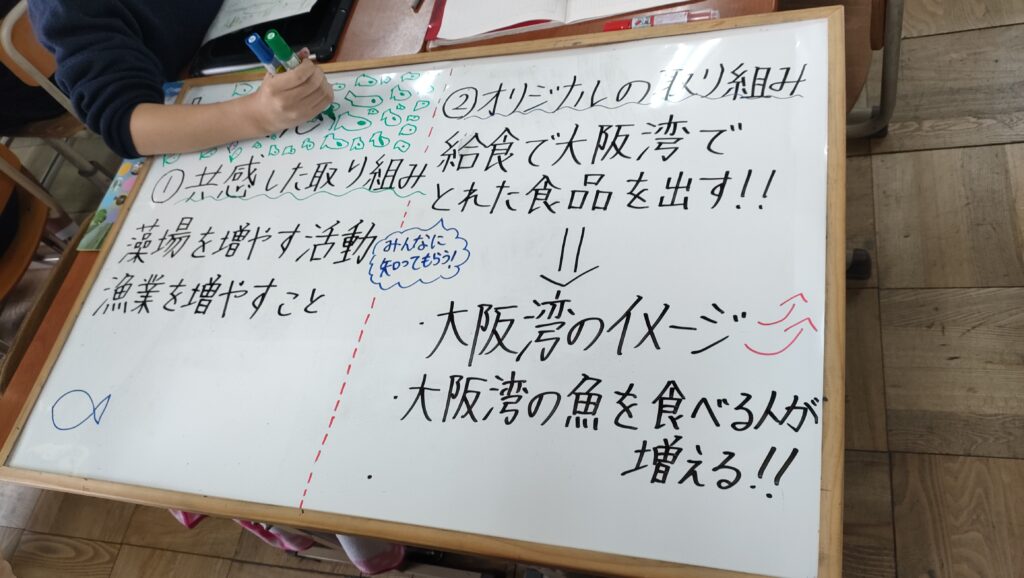 ①共感した取り組み
藻場を増やす活動
漁業を増やすこと
みんなに
知ってもらう!
②オリジナルの取り組み
給食で大阪湾で
とれた食品を出す!!
・大阪湾のイメージ
・大阪湾の魚を食べる人が
増える!!